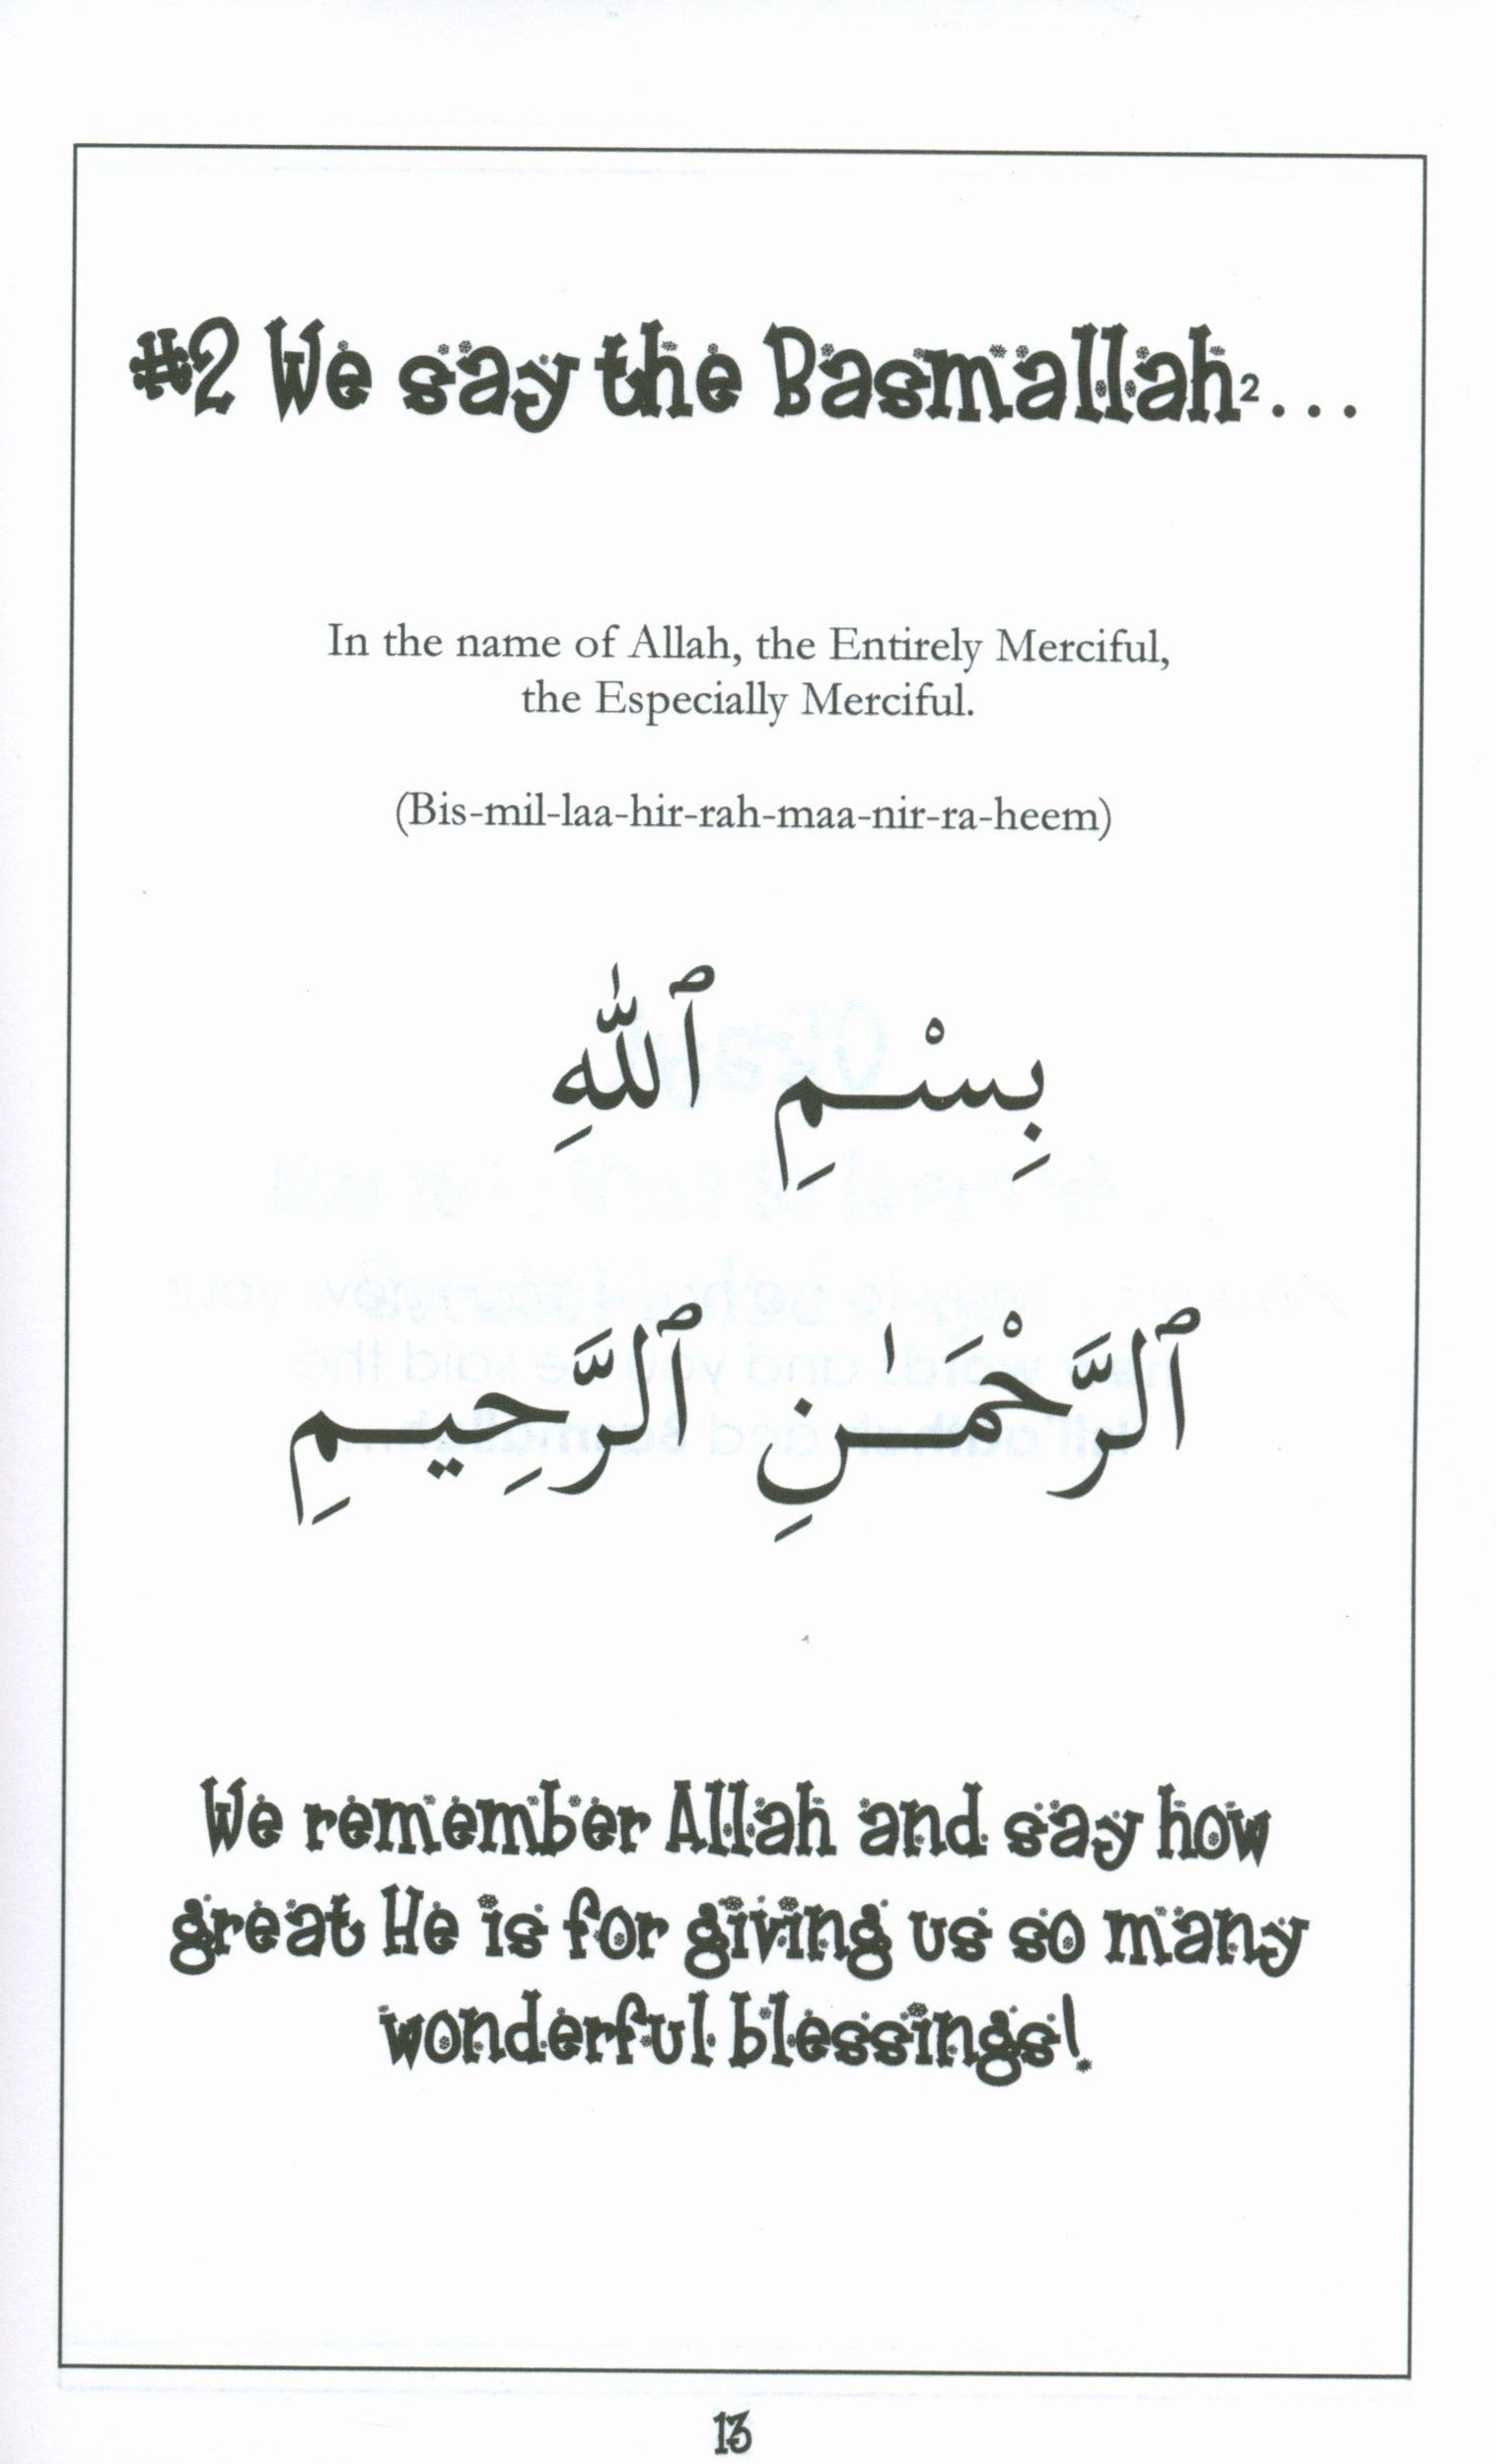 #2 We say the Basmallah²...
In the name of Allah, the Entirely Merciful,
the Especially Merciful.
(Bis-mil-laa-hir-rah-maa-nir-ra-heem)
بِسْمِ ٱللَّٰهِ
ٱلرَّحْمَـٰنِ ٱلرَّحِيمِ
We remember Allah and say how
great He is for giving us so many
wonderful blessings!
13